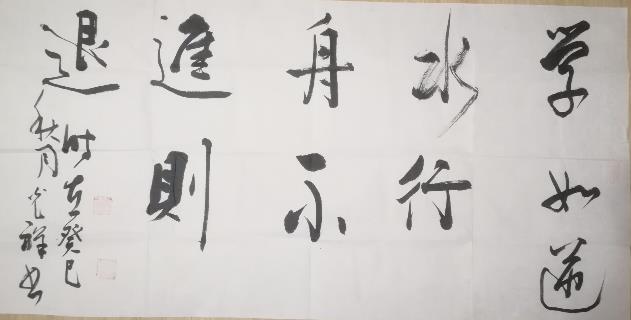 学如逆
水行
舟不
進則
退
时在癸巳
秋月光祥书